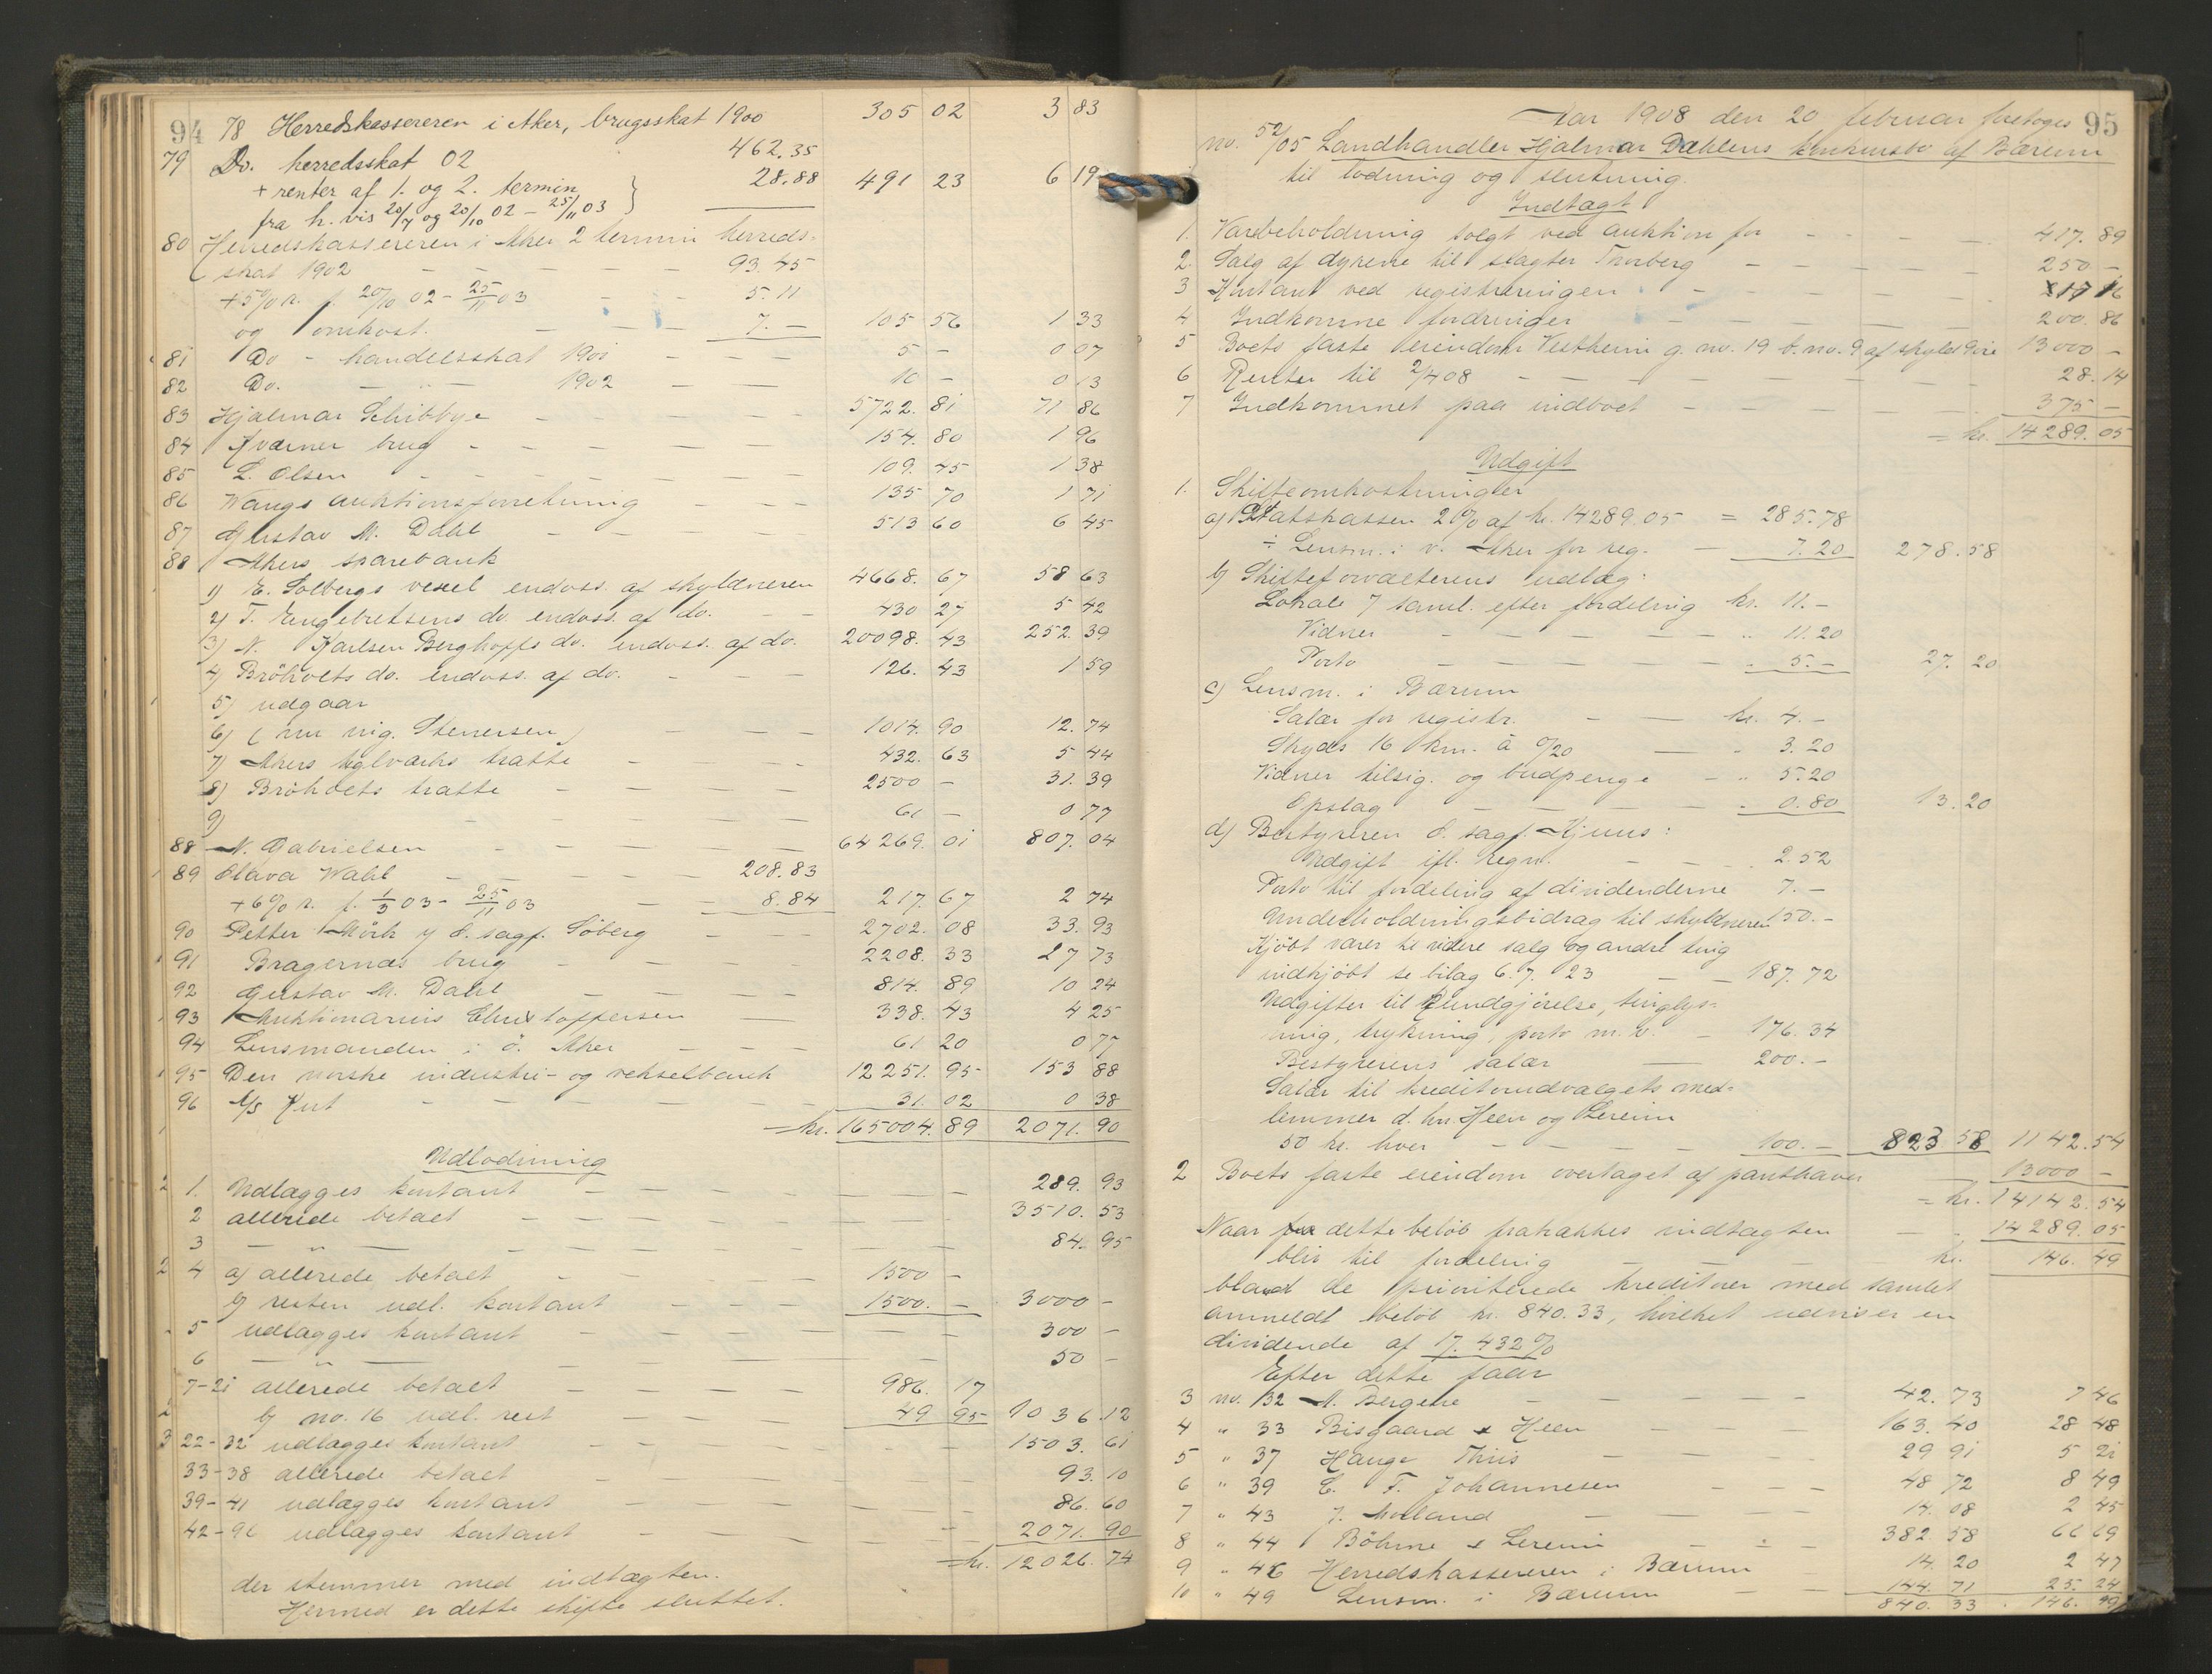 94 78 Herredskassereren i Aker, brugsskat 1900 305 02 3 83
79 Do. herredsskat 02 462.35
+ renter af 1. og 2. termin 28.88 491 23 6 19
fra h. vis 20/7 og 20/10 02 - 25/11 03
80 Herredskassereren i Aker 2 termin herreds-
skat 1902 93.45
+ 5% r. f. 20/10 02 - 25/11 03 5.11
og omkost. 7.- 105 56 1 33
81 Do - handelsskat 1901 5 - 0 07
82 Do. - " - 1902 10 - 0 13
83 Hjalmar Schibbye 5722. 81 71 86
84 Kværner brug 154. 80 1 96
85 L. Olsen 109. 45 1 38
86 Wangs auktionsforretning 135 70 1 71
87 Gustav M. Dahl 513 60 6 45
88 Akers sparebank
1) E. Solbergs vexel endoss. af skyldneren 4668. 67 58 63
2) T. Engebretsens do. endoss. af do. 430 27 5 42
3) N. Karlsen Berghoffs do. endoss. af do. 20098. 43 252. 39
4) Bröholts do. endoss. af do. 126. 43 1 59
5) udgaar
6) ( nu sig. Stenersen) 1014. 90 12. 74
7) Akers teglværks tratte 432. 63 5 44
8) Bröholts tratte 2500 - 31. 39
9) 61 - 0 77
88 N. Gabrielsen 64269. 01 807. 04
89 Olava Wahl 208.83
+ 6% r. f. 1/3 03 - 25/11 03 8.84 217. 67 2 74
90 Petter Mörk v/ o. sagf. Söberg 2702. 08 33. 93
91 Bragernæs brug 2208. 33 27 73
92 Gustav M. Dahl 814. 89 10 24
93 Auktionarius Christoffersen 338. 43 4 25
94 Lensmanden i ö. Aker 61 20 0 77
95 Den norske industri- og vekselbank 12251. 95 153 88
96 A/S Kurt 31. 02 0 38
= kr. 165004. 89 2071. 90
Udlodning
1. Udlægges kontant 289. 93
2 allerede betalt 3510. 53
3 - " - 84. 95
4 a) allerede betalt 1500 -
b) resten udl. kontant 1500. - 3000 -
5 udlægges kontant 300 -
6 - " - 50 -
7-21 allerede betalt 986. 17
b) no. 16 udl. rest 49 95 1036. 12
22-32 udlægges kontant 1503. 61
33-38 allerede betalt 93. 10
39-41 udlægges kontant 86. 60
42-96 udlægges kontant 2071. 90
= kr. 12026. 74
der stemmer med indtægten.
Hermed er dette skifte sluttet.
Aar 1908 den 20 februar foretoges 95
no. 52/05 Landhandler Hjalmar Dæhlens konkursbo af Bærum
til lodning og slutning.
Indtægt
1. Varebeholdning solgt ved auktion for 417. 89
2. Salg af dyrene til slagter Thorberg 250 -
3 Kontant ved registreringen 17 16
4 Indkomne fordringer 200. 86
5 Boets faste eiendom Vestheim g. no. 19 b. no. 9 af skyld 9 øre 13000 -
6 Renter til 2/4 08 28. 14
7 Indkommet paa indboet 375 -
= kr. 14289. 05
Udgift
1. Skifteomkostninger
a) Statskassen 2% af kr. 14289.05 = 285.78
÷ Lensm. i v. Aker for reg. 7.20 278. 58
b) Skifteforvalterens udlæg:
Lokale 7 saml. efter fordeling kr. 11.-
Vidner " 11.20
Porto " 5.- 27. 20
c) Lensm. i Bærum
Salær for registr. kr. 4.-
Skyds 16 km. à 0/20 " 3.20
Vidner tilsig. og budpenge " 5.20
Opslag " 0.80 13. 20
d) Bestyreren o. sagf. Kjuus:
Udgift ifl. regn. 2.52
Porto til fordeling af dividenderne 7.-
Underholdningsbidrag til skyldneren 150.-
Kjöbt varer til videre salg og andre ting
indkjöbt se bilag 6. 7. 23 187.72
Udgifter til kundgjörelse, tinglys-
ning, trykning, porto m. v. 176.34
Bestyrerens salær 200.-
Salær til kreditorudvalgets med-
lemmer d. hr. Heen og Lereim
50 kr. hver 100.- 823 58 1142.54
2 Boets faste eiendom overtaget af panthaver 13000 -
= kr. 14142. 54
Naar dette beløb fratrækkes indtægten 14289. 05
blir til fordeling kr. 146. 49
bland de prioriterede kreditorer med samlet
anmeldt beløb kr. 840.33, hvilket udviser en
dividende af 17.432%
Efter dette faar
3 no. 32 A. Bergene 42. 73 7 46
4 " 33 Bisgaard & Heen 163. 40 28 48
5 " 37 Hauge Thiis 29 91 5 21
6 " 39 C. F. Johannesen 48 72 8 49
7 " 43 J. Molland 14. 08 2 45
8 " 44 Böhme & Lereim 382 58 66 69
9 " 46 Herredskassereren i Bærum 14. 20 2 47
10 " 49 Lensm. i Bærum 144. 71 25. 24
840. 33 146. 49